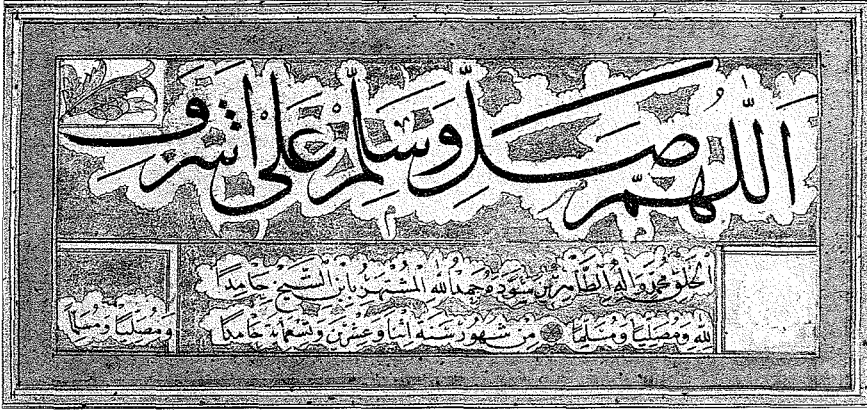 اللَّهُمَّ صَلِّ وَسَلِّمْ عَلَى أَشْرَفِ
الخلق محمد وآله الطاهرين سوده حمد الله المشتهر بابن الشيخ حامدا
لله ومصليا ومسلما من شهور سنة اثنا وعشرين وتسعمائة حامدا
ومصليا ومسلما